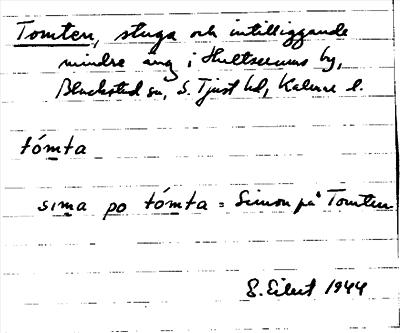 Tomten, stuga och intilliggande
mindre äng i Hultserums by,
Blackstad sn, S. Tjust hd, Kalmar l.
tómta
sima po tómta = Simon på Tomten
S. Eilert 1944